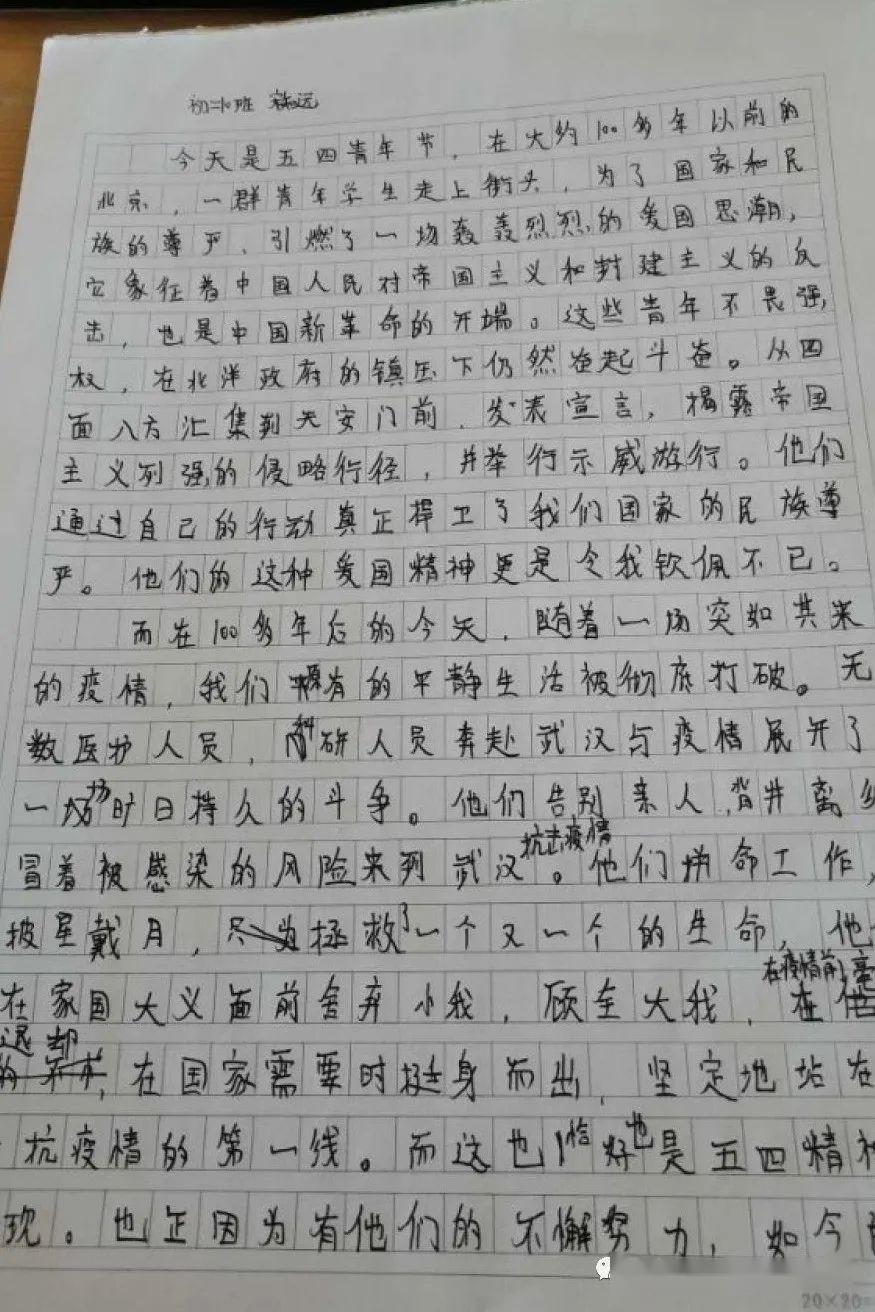 初二班
今天是五四青年节，在大约100多年以前的
北京，一群青年学生走上街头，为了国家和民
族的尊严，引燃了一场轰轰烈烈的爱国思潮，
它象征着中国人民对帝国主义和封建主义的反
击，也是中国新革命的开端。这些青年不畏强
权，在北洋政府的镇压下仍然奋起斗奋。从四
面八方汇集到天安门前，发表宣言，揭露帝国
主义列强的侵略行径，并举行示威游行。他们
通过自己的行动真正捍卫了我们国家的民族尊
严。他们的这种爱国精神更是令我钦佩不已。
而在100多年后的今天，随着一场突如其来
的疫情，我们原有的平静生活被彻底打破。无
数医护人员，科研人员奔赴武汉与疫情展开了
一场旷日持久的斗争。他们告别亲人，背井离乡
冒着被感染的风险来到武汉抗击疫情。他们拼命工作，
披星戴月，拯救了一个又一个的生命，他
在家国大义面前舍弃小我，顾全大我，在疫情前毫
退却，在国家需要时挺身而出，坚定地站在
抗疫情的第一线。而这也恰好也是五四精神
现。也正因为有他们的不懈努力，如今
20×20=